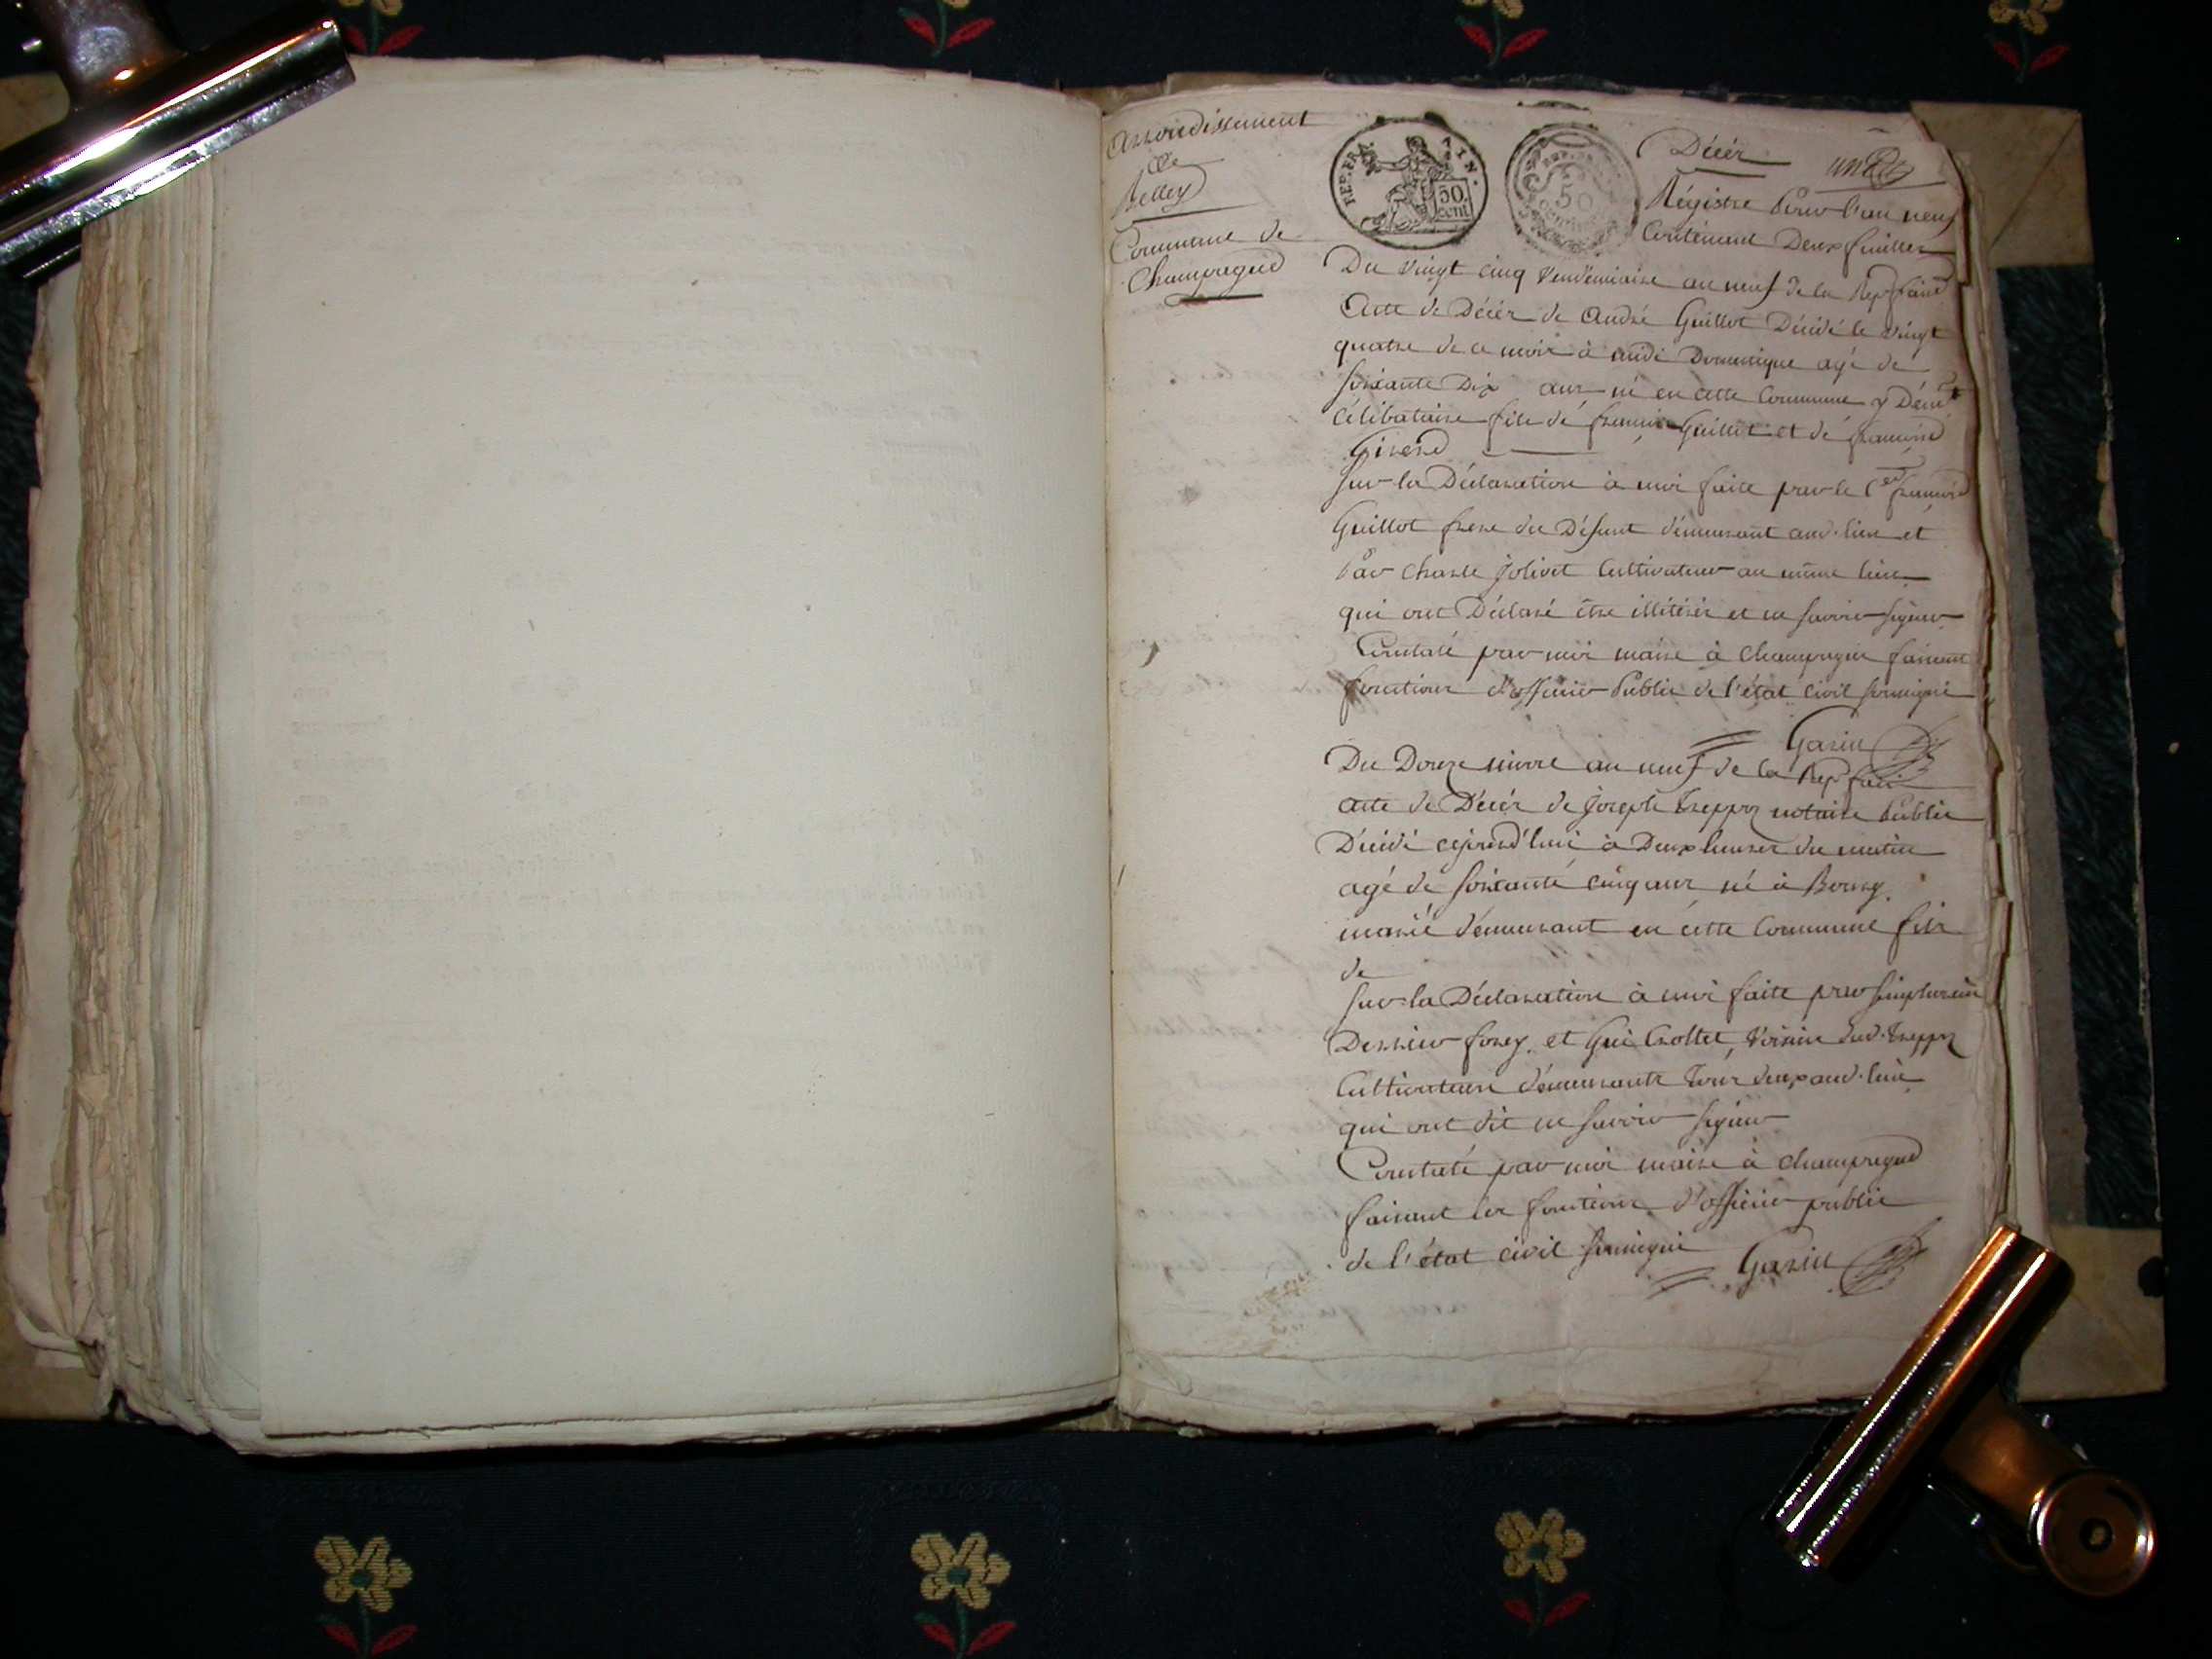 arrondissement
de
Belley
Commune de
Champregnd
REP. FRA. AIN.
50
cent
REP. FRA.
50
centimes
Décèr
un
Régistre Pour l'an neuf
Contenant Deux feuilles
Du vingt cinq Vendémiaire an neuf de la Rep. franç
Acte de Décèr de André Guillot Décédé le vingt
quatre de ce moir à midi Domestique agé de
soixante Dix anr né en cette Commune y Démt
célibataire fils de françoir Guillot et de françoise
Girerd
sur la Déclaration à moi faite par le C.en françoir
Guillot frere du Défunt démeurant aud. lieu et
Par Charle Jolivet Cultivateur au même lieu
qui ont Déclaré être illitérér et ne savoir signer
Constaté par moi maire à Champregnd faisant
fonctions d'officier Public de l'état civil soussigné
Garin
Du Douze nivose an neuf de la Rep. fran
acte de Décèr de Joseph Treppoz notaire Public
Décédé cejourd'hui à Deux heures du matin
agé de soixante cinq anr né à Bourg
marié démeurant en cette Commune filr
de
sur la Déclaration à moi faite par simphorien
Derrieu forey. et Gui Crollet, voisins dud. Treppoz
Cultivateurs démeurants tous deux aud. lieu
qui ont dit ne savoir signer
Constaté par moi maire à Champregnd
faisant ler fonctions d'officier public
de l'état civil soussigné Garin